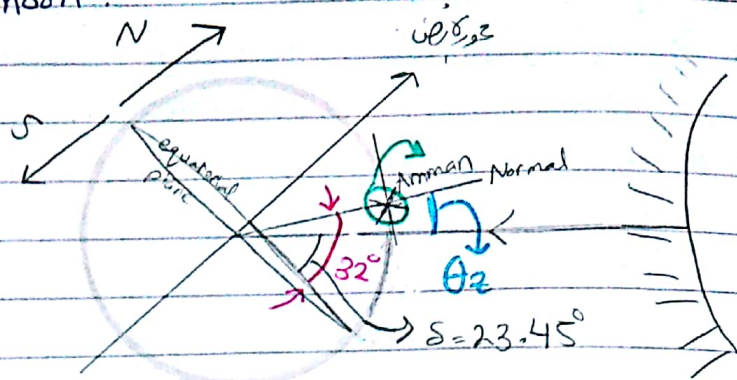 N
محور الأرض
S
equatorial
plane
Amman Normal
32°
θz
δ = 23.45°